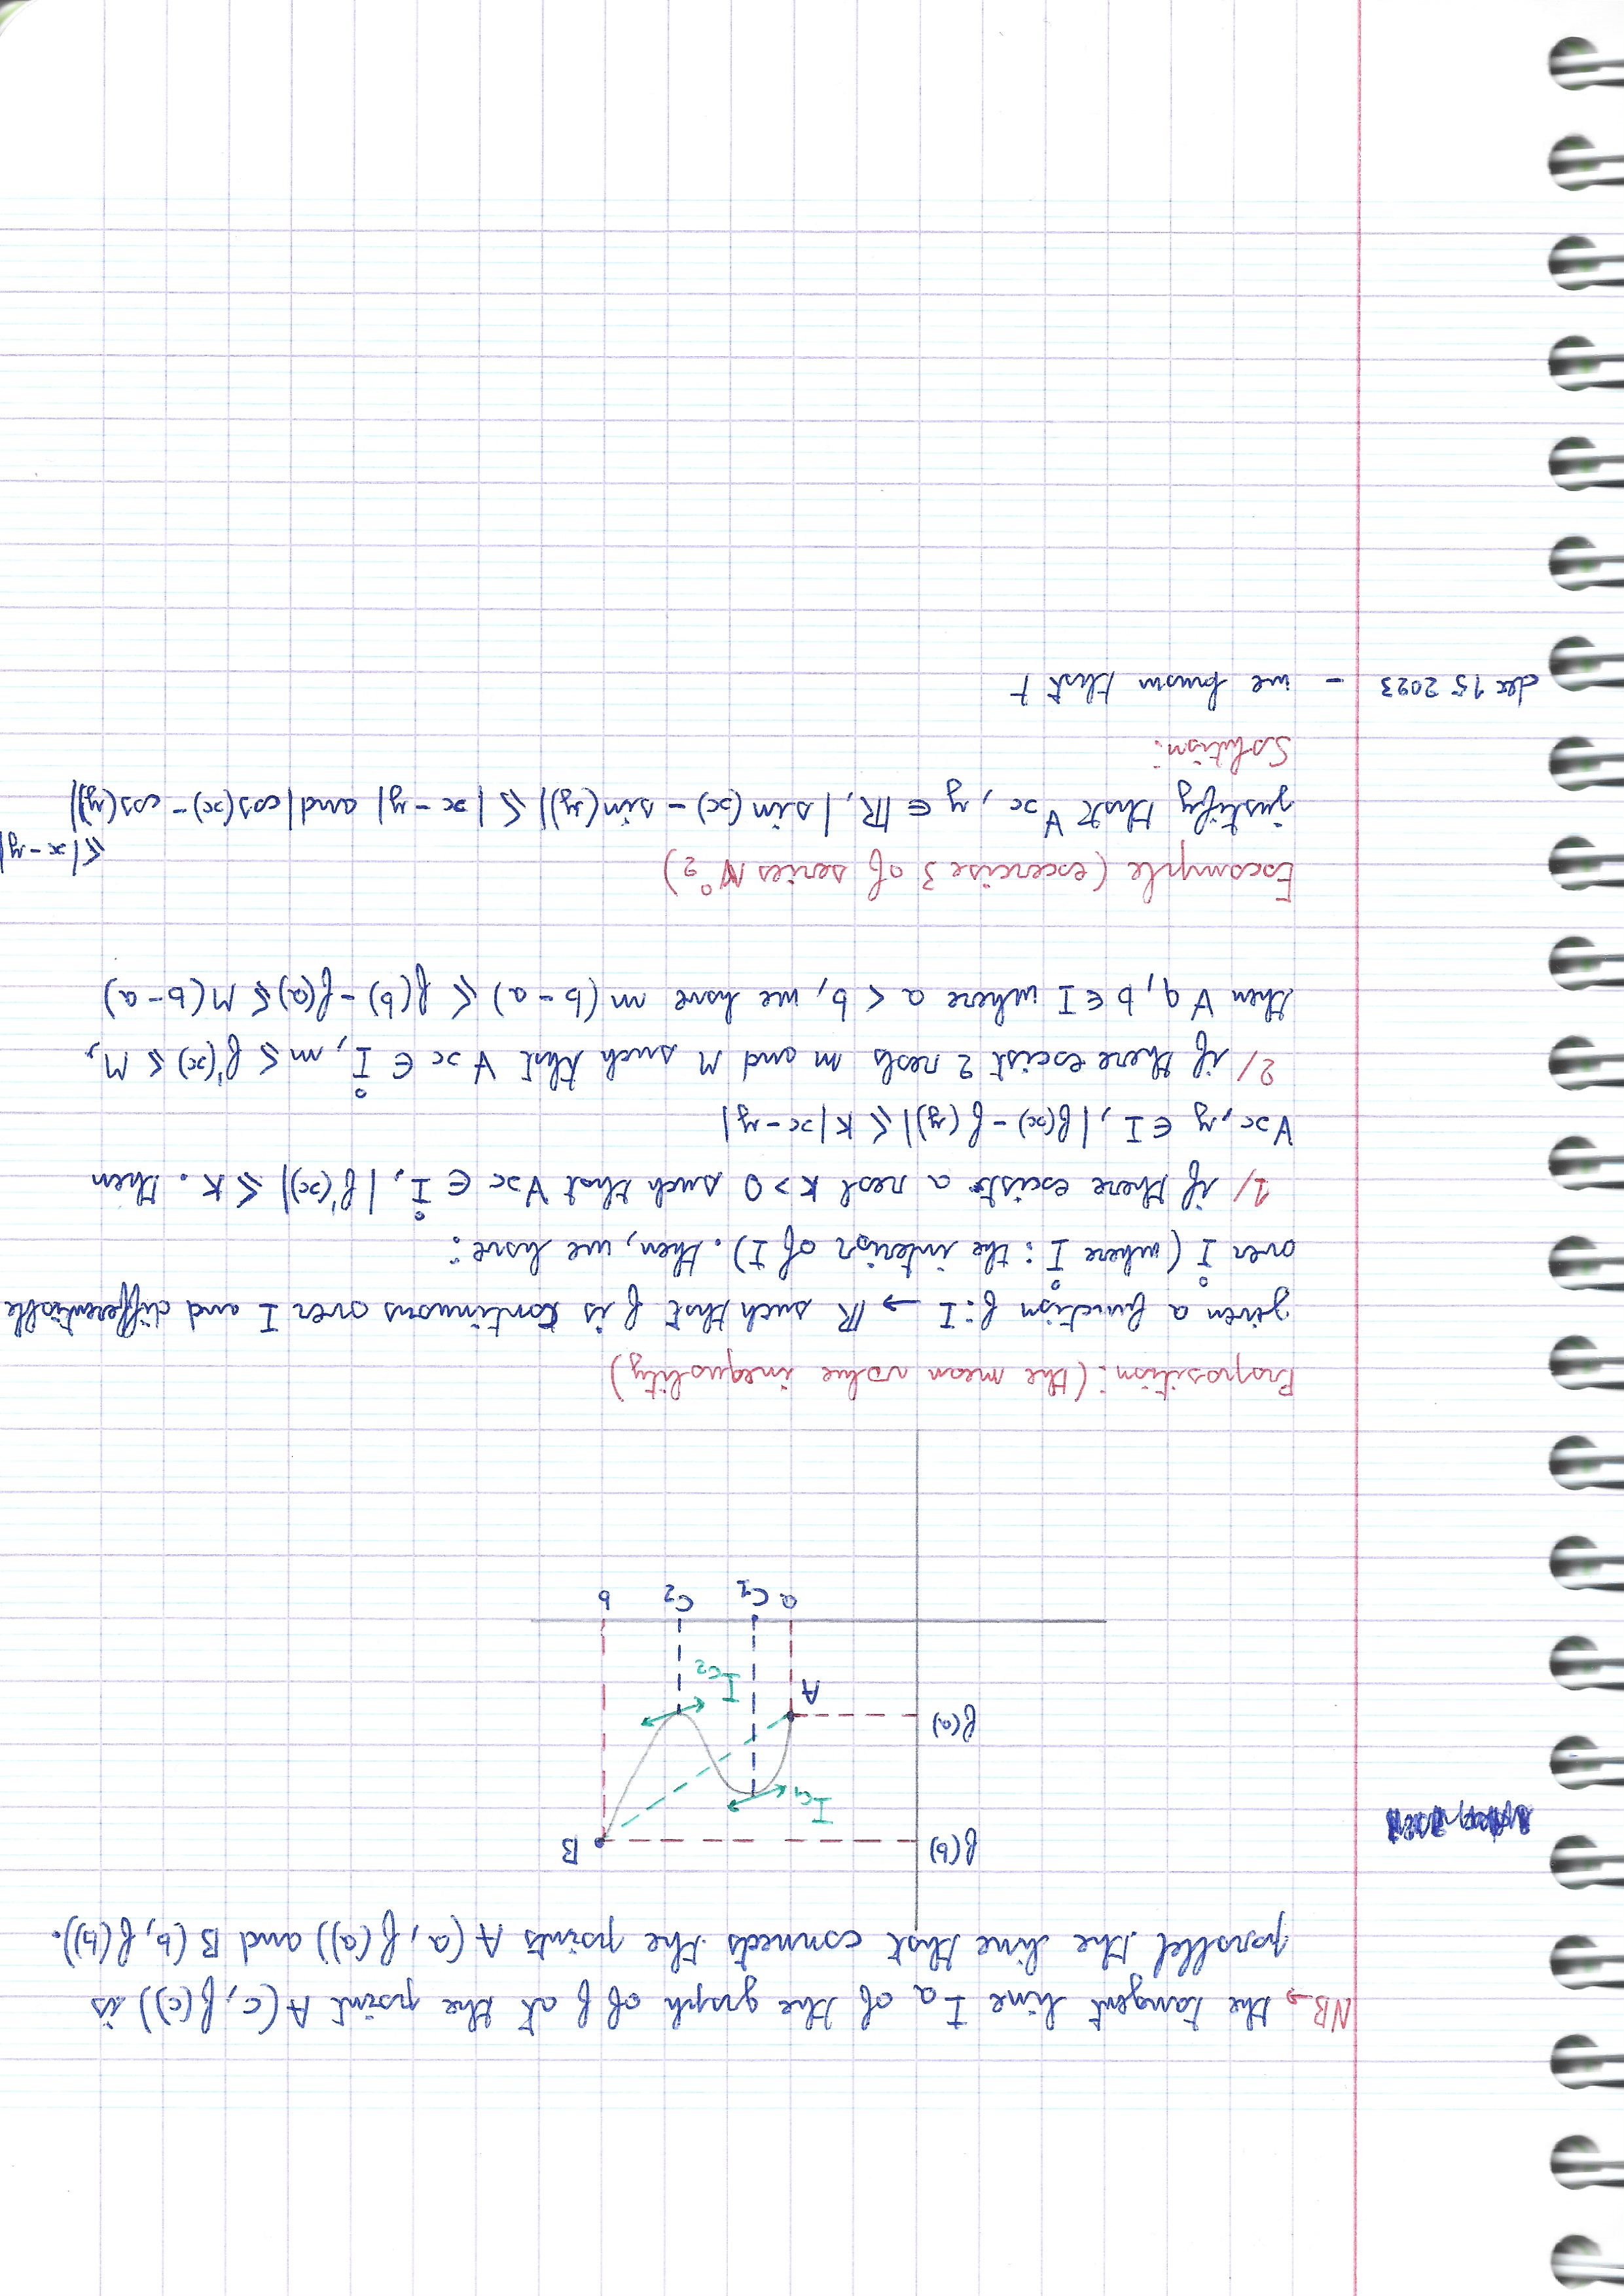 NB→ the tangent line I a of the graph of f at the point A(c, f(c)) is
parallel the line that connects the points A(a, f(a)) and B(b, f(b)).
f(b)
B
I c₁
f(a)
A
I c₂
a c₁ c₂ b
Proposition: (the mean value inequality)
given a function f: I → ℝ such that f is continuous over I and differentiable
over I̊ (where I̊ : the interior of I). then, we have:
1/ if there exists a real K > 0 such that ∀x ∈ I̊, |f'(x)| ⩽ K. then
∀x, y ∈ I, |f(x) - f(y)| ⩽ K|x-y|
2/ if there exist 2 reals m and M such that ∀ x ∈ I̊, m ⩽ f'(x) ⩽ M,
then ∀ a, b ∈ I where a < b, we have m(b-a) ⩽ f(b) - f(a) ⩽ M(b-a)
Example (exercise 3 of series N°2)
justify that ∀x, y ∈ ℝ, |sin(x) - sin(y)| ⩽ |x-y| and |cos(x) - cos(y)| ⩽|x-y|
Solution:
dec 15 2023 - we know that f